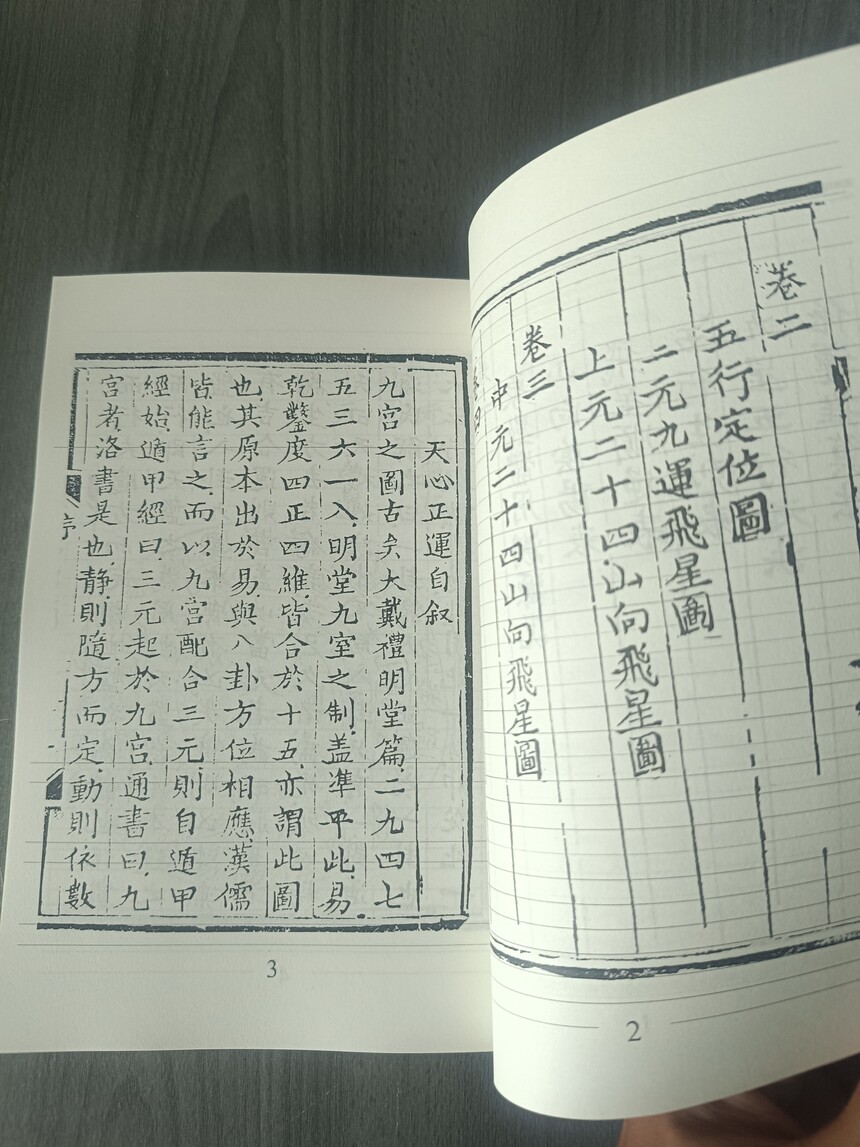 卷二
五行定位圖
三元九運飛星圖
上元二十四山向飛星圖
卷三
中元二十四山向飛星圖
2
天心正運自叙
九宮之圖古矣大戴禮明堂篇、二九四七
五三六一八、明堂九室之制、盖凖乎此、易
乾鑿度四正四維、皆合於十五、亦謂此圖
也、其原本出於易、與八卦方位相應、漢儒
皆能言之、而以九宮配合三元、則自遁甲
經始、遁甲經曰、三元起於九宮、通書曰、九
宮者、洛書是也、靜則隨方而定、動則依數
序
3